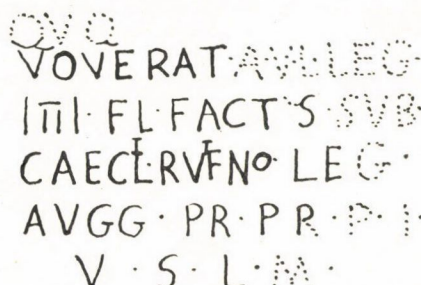 QVQ
VOVERAT·AVI·LEG·
IIII·FL·FACT S·SVB·
CAECL·RVFNO LEG·
AVGG·PR·PR·P·I·
V·S·L·M·